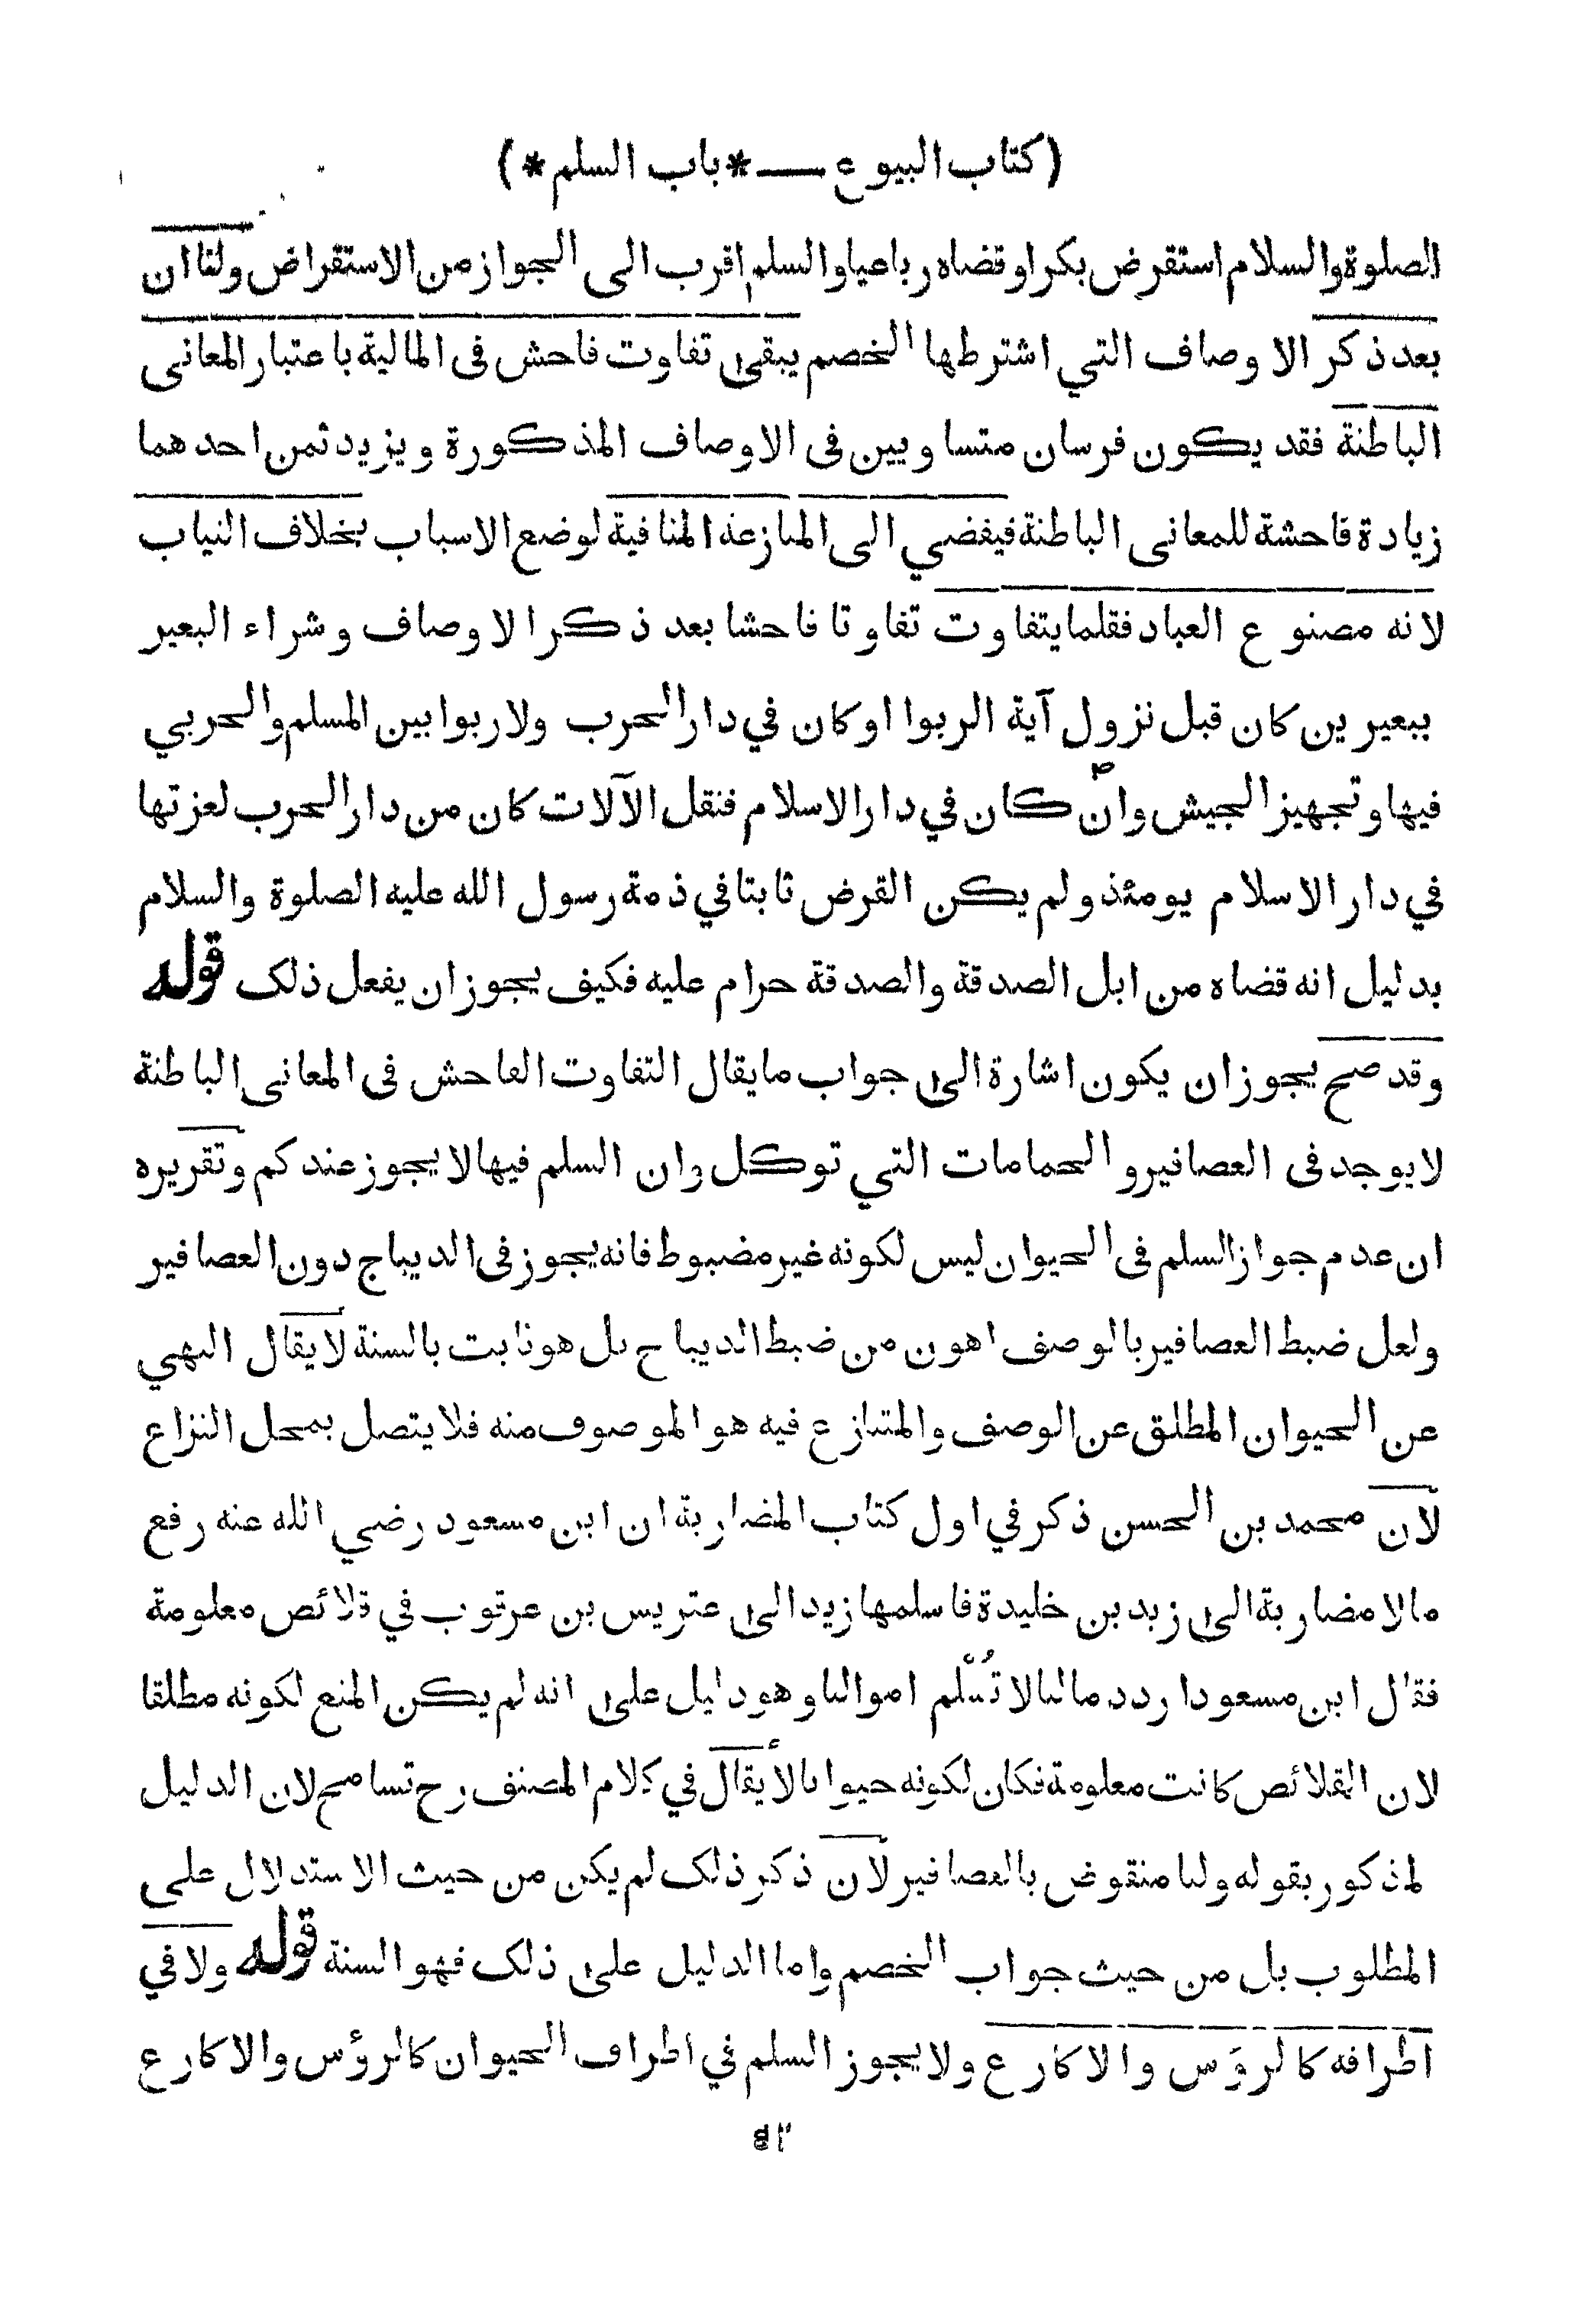 (كتاب البيوع — * باب السلم *)
الصلوة والسلام استقرض بكرا وقضاه رباعيا والسلم اقرب الى الجواز من الاستقراض ولنا ان
بعد ذكر الاوصاف التي اشترطها الخصم يبقى تفاوت فاحش فى المالية باعتبار المعانى
الباطنة فقد يكون فرسان متساويين فى الاوصاف المذكورة ويزيد ثمن احدهما
زيادة فاحشة للمعانى الباطنة فيفضي الى المنازعة المنافية لوضع الاسباب بخلاف الثياب
لانه مصنوع العباد فقلما يتفاوت تفاوتا فاحشا بعد ذكر الاوصاف وشراء البعير
ببعيرين كان قبل نزول آية الربوا او كان في دار الحرب ولا ربوا بين المسلم والحربي
فيها وتجهيز الجيش وان كان في دار الاسلام فنقل الآلات كان من دار الحرب لعزتها
في دار الاسلام يومئذ ولم يكن القرض ثابتا في ذمة رسول الله عليه الصلوة والسلام
بدليل انه قضاه من ابل الصدقة والصدقة حرام عليه فكيف يجوز ان يفعل ذلك قوله
وقد صح يجوز ان يكون اشارة الى جواب ما يقال التفاوت الفاحش فى المعانى الباطنة
لا يوجد فى العصافير والحمامات التي توكل وان السلم فيها لا يجوز عندكم وتقريره
ان عدم جواز السلم فى الحيوان ليس لكونه غير مضبوط فانه يجوز فى الديباج دون العصافير
ولعل ضبط العصافير بالوصف اهون من ضبط الديباج بل هو ثابت بالسنة لا يقال النهي
عن الحيوان المطلق عن الوصف والمتنازع فيه هو الموصوف منه فلا يتصل بمحل النزاع
لان محمد بن الحسن ذكر في اول كتاب المضاربة ان ابن مسعود رضي الله عنه رفع
مالا مضاربة الى زيد بن خليدة فاسلمها زيد الى عتريس بن عرقوب في قلائص معلومة
فقال ابن مسعود اردد مالنا لا تُسْلم اموالنا وهو دليل على انه لم يكن المنع لكونه مطلقا
لان القلائص كانت معلومة فكان لكونه حيوانا لا يقال في كلام المصنف رح تسامح لان الدليل
لمذكور بقوله ولنا منقوض بالعصافير لان ذكر ذلك لم يكن من حيث الاستدلال على
المطلوب بل من حيث جواب الخصم واما الدليل على ذلك فهو السنة قوله ولا في
اطرافه كالرؤس والاكارع ولا يجوز السلم في اطراف الحيوان كالرؤس والاكارع